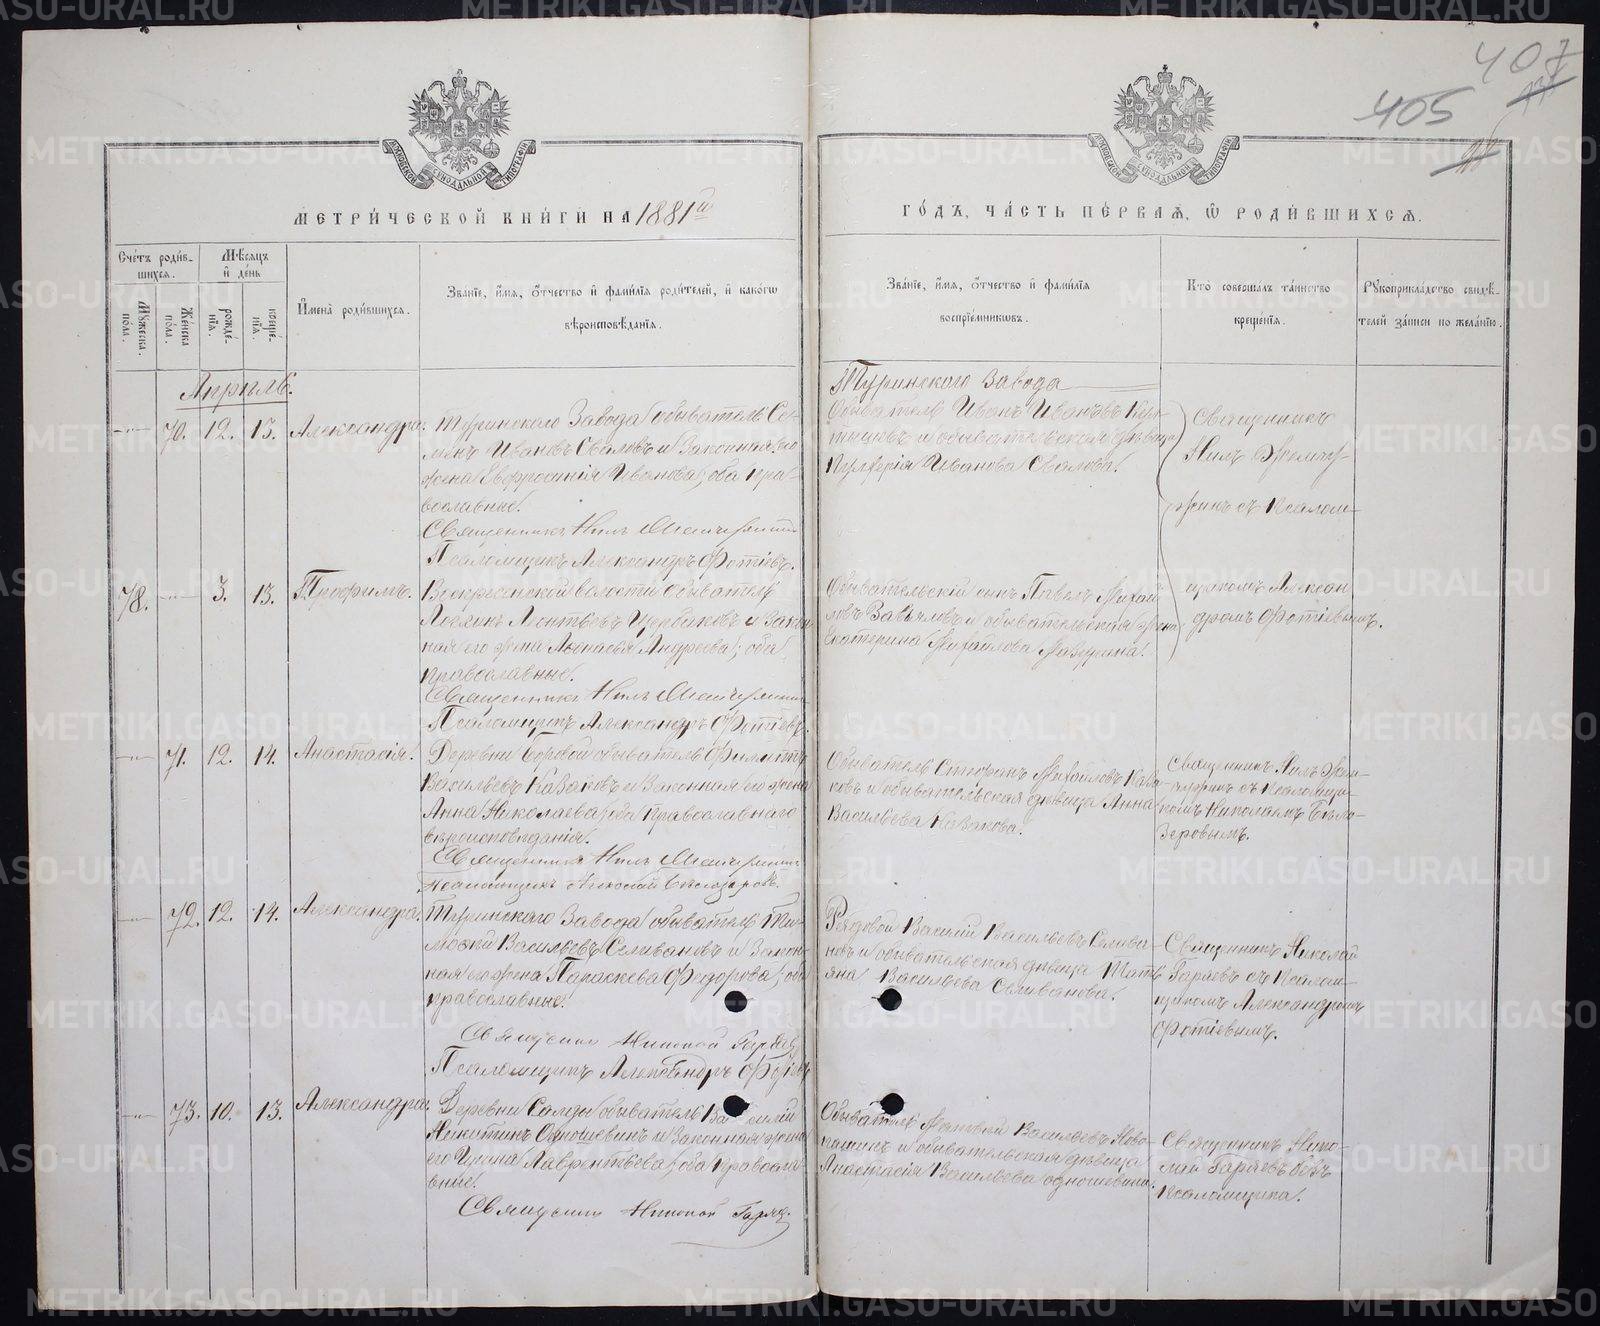 407
405
МЕТРИ́ЧЕСКОЙ КНИ́ГИ НА 1881й
ГО́ДЪ, ЧА́СТЬ ПЕ́РВАЯ, Ѿ РОДИ́ВШИХСЯ.
Сче́тъ роди́в-
шихся.
Мѣ́сяцъ
и҆ де́нь
Мꙋ́жеска
по́ла.
Же́нска
по́ла.
рожде́-
нїя.
креще́-
нїя.
И҆мена̀ роди́вшихся.
Зва́нїе, и҆́мя, ѻ҆́тчество и҆ фамı́лїя роди́телей, и҆ како́гѡ
вѣроисповѣ́данїя.
Зва́нїе, и҆́мя, ѻ҆́тчество и҆ фамı́лїя
воспрїе́мникѡвъ.
Кто̀ соверша́лъ та́инство
креще́нїя.
Рꙋкоприкла́дство свидѣ́-
телей за́писи по жела́нїю.
Апрѣль.
70. 12. 13. Александра.
Туринскаго Завода обыватель Се-
менъ Ивановъ Сваловъ и Законная его
жена Евфросинія Иванова; оба пра-
вославные.
Священникъ Нилъ
Псаломщикъ Александръ Фотіевъ.
Туринского Завода
Обыватель Иванъ Ивановъ
и обывательская дѣвица
Пулхерія Иванова Свалова.
Священникъ
Нилъ
съ Псалом-
щикомъ Алексан
дромъ Фотіевымъ.
78. 3. 13. Трофимъ.
Воскресенской волости обыватель
Леонтьевъ Щербаковъ и Закон
ная его жена Андреева; оба
православные.
Священникъ Нилъ
Псаломщикъ Александръ Фотіевъ.
Обывательскій сынъ Павелъ Михай-
ловъ и обывательская жена
Екатерина Михайлова
71. 12. 14. Анастасія.
Деревни обыватель Филиппъ
Васильевъ Казаковъ и Законная его жена
Анна Николаева, оба Православнаго
вѣроисповѣданія.
Священникъ Нилъ
Псаломщикъ Николай Бѣлозеровъ.
Обыватель Стефанъ Михайловъ Каза-
ковъ и обывательская дѣвица Анна
Васильева Казакова.
Священникъ Нилъ
съ Псаломщи-
комъ Николаемъ Бѣло-
зеровымъ.
72. 12. 14. Александра.
Туринскаго Завода обыватель Ти-
мофей Васильевъ Селивановъ и Закон-
ная его жена Параскева Федорова; оба
православные.
Священникъ Николай Гаряевъ
Псаломщикъ Александръ Фотіевъ
Рядовой Василій Васильевъ Селива-
новъ и обывательская дѣвица Тать-
яна Васильева Селиванова.
Священникъ Николай
Гаряевъ съ Псалом-
щикомъ Александромъ
Фотіевымъ.
73. 10. 13. Александра.
Деревни Салды обыватель Василій
Никитинъ Одношевинъ и Законная жена
его Ирина Лаврентьева, оба Правосла-
вные.
Священникъ Николай Гаряев.
Обыватель Матвей Васильевъ Ново-
пашинъ и обывательская дѣвица
Анастасія Васильева Одношевина.
Священникъ Нико-
лай Гаряевъ безъ
Псаломщика.
METRIKI.GASO-URAL.RU